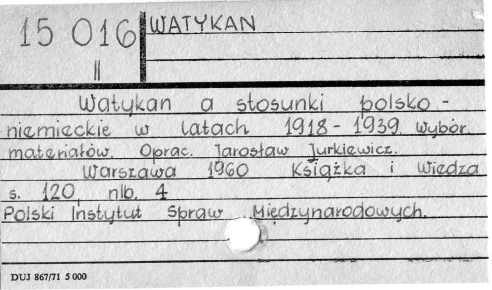 15 016
II
WATYKAN
Watykan a stosunki polsko-
niemieckie w latach 1918-1939. Wybór.
materiałów. Oprac. Jarosław Jurkiewicz.
Warszawa 1960 Książka i Wiedza
s. 120, nlb. 4
Polski Instytut Spraw Międzynarodowych.
DUJ 867/71 5 000